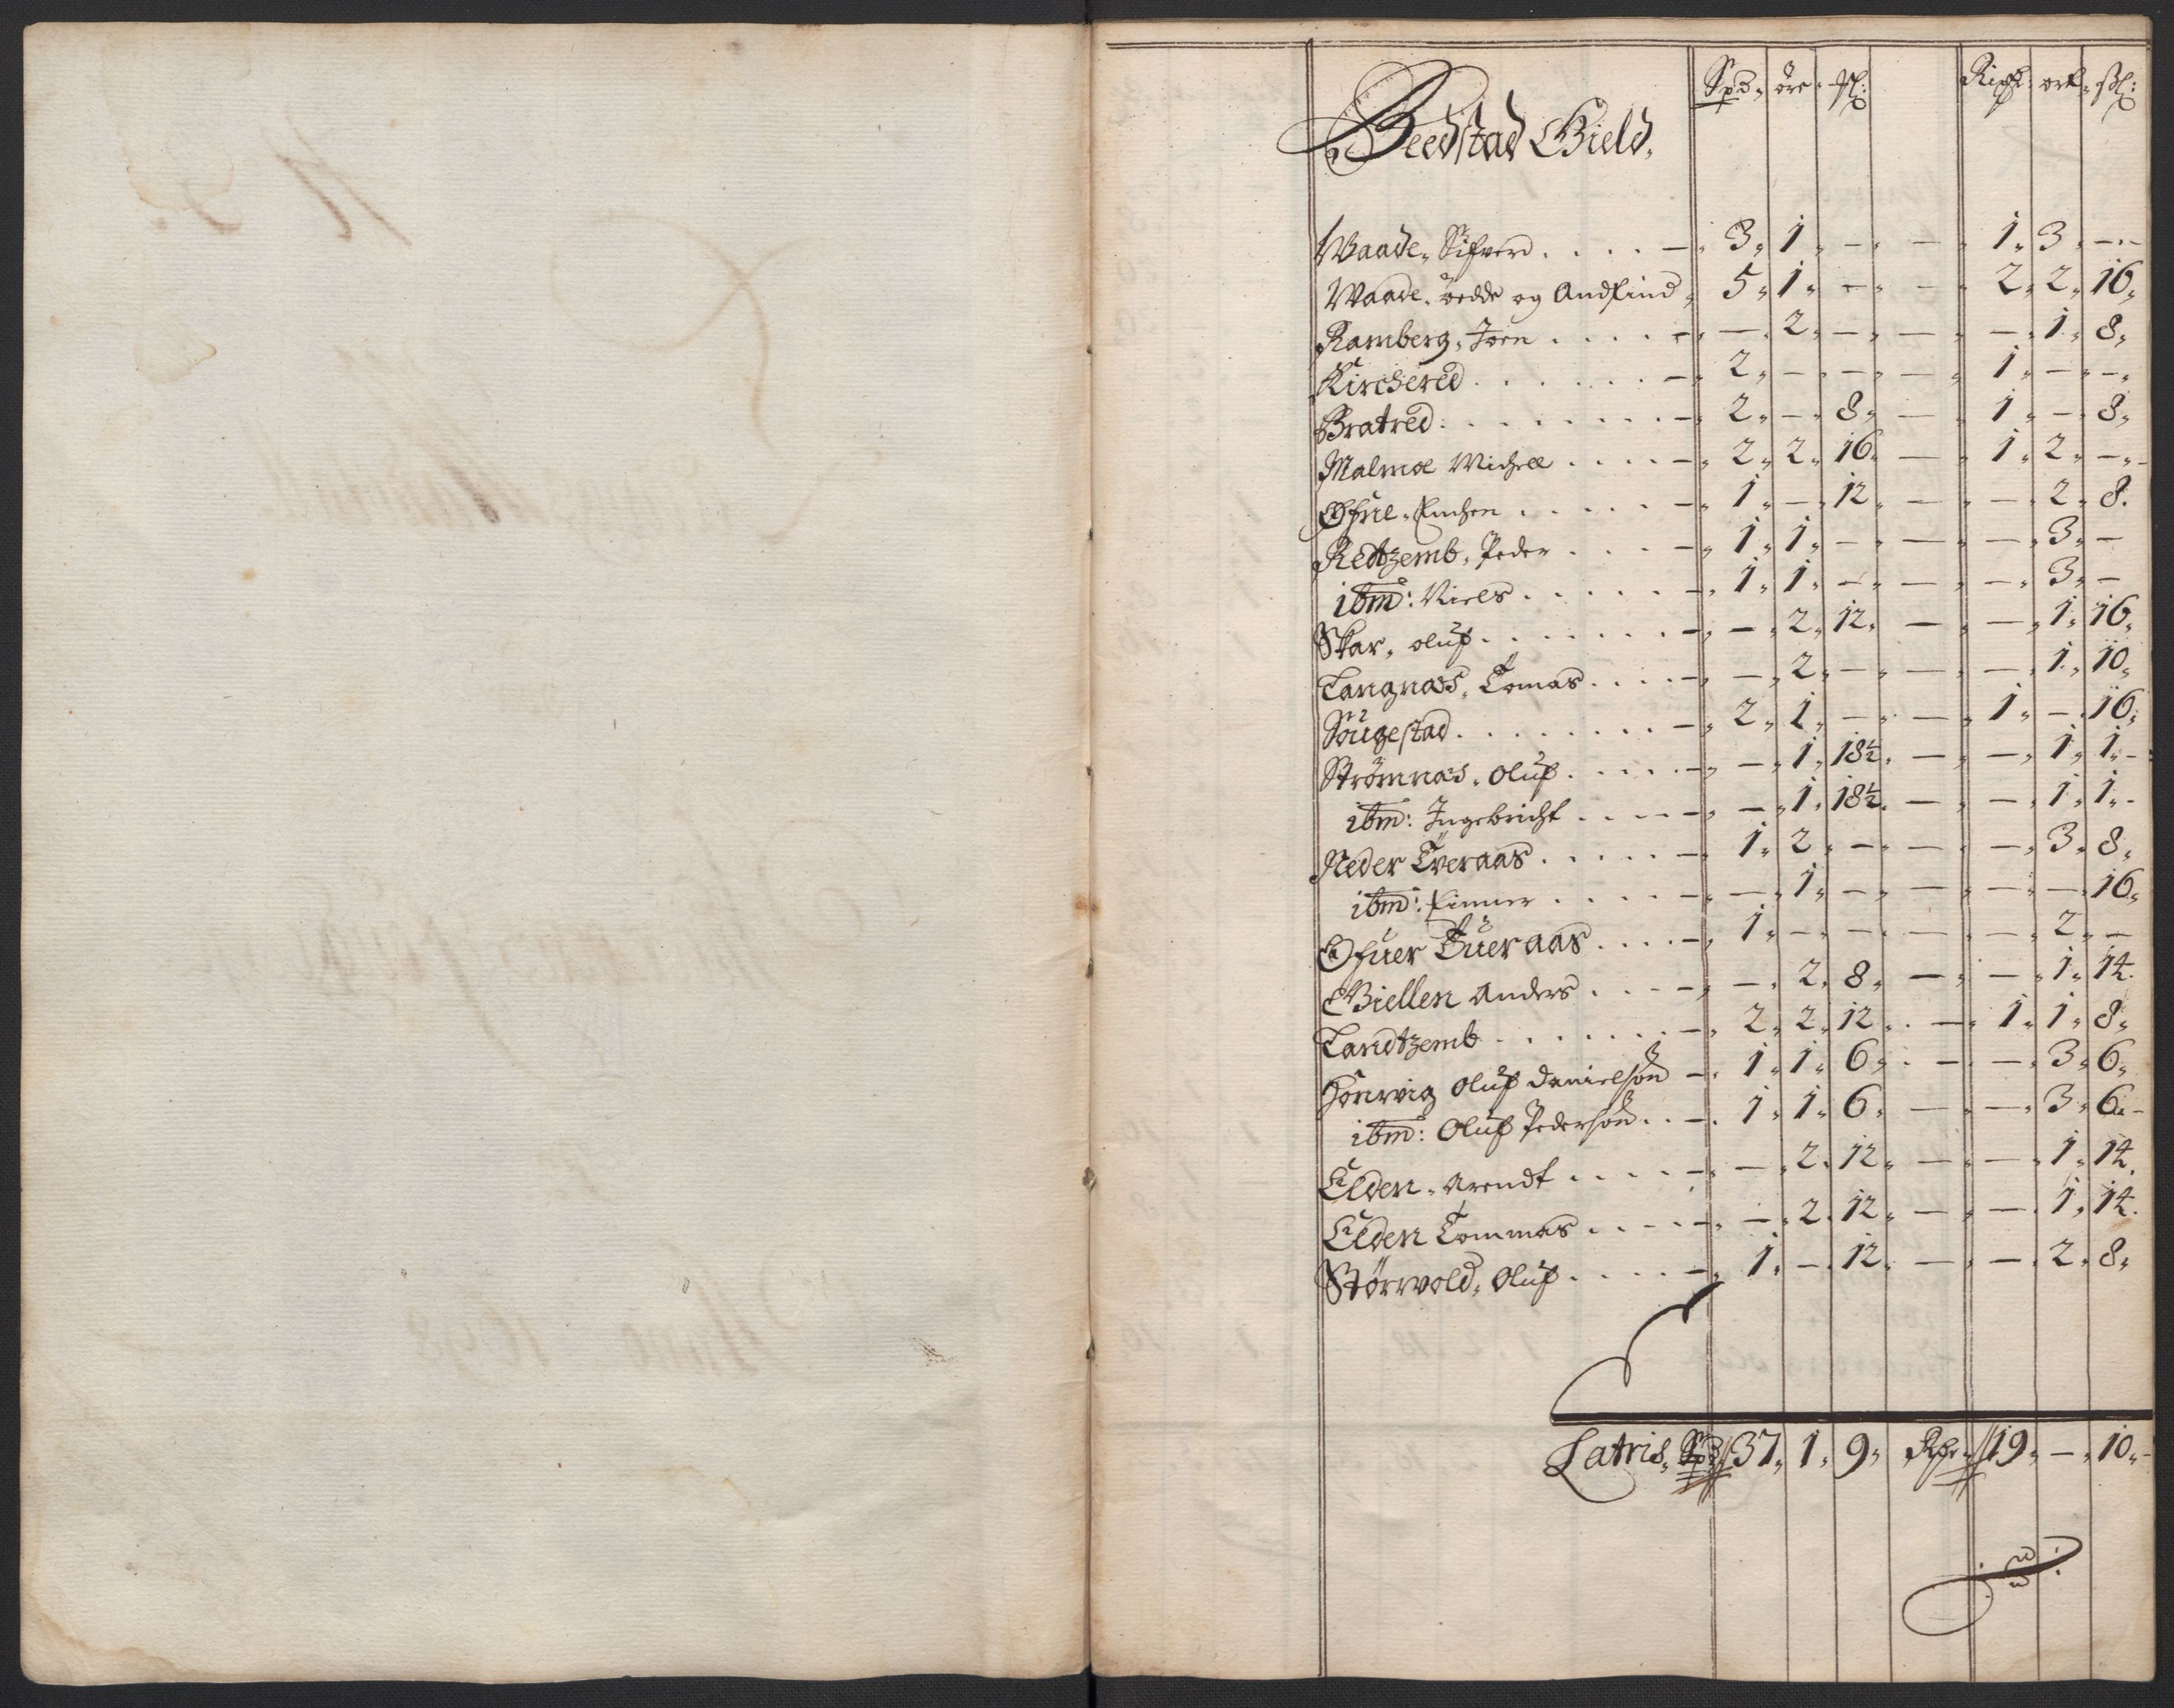 Spd. öre. ßl: Rixd: ort. ßl:
Beedstad Gield.
Waade. Sifverd . . . . — 3. 1. — — 1. 3. —
Waade. öedde og Andfind. 5. 1. — — 2. 2. 16.
Ramberg. Joen . . . . — — 2. — — — 1. 8.
Kirchered . . . . . . — 2. — — — 1. — —
Bratred: . . . . . . . — 2. — 8. — 1. — 8.
Malmoe Michell . . . . — 2. 2. 16. — 1. 2. —
Øfne. . . . . . — 1. — 12. — — 2. 8.
Redtzemb. Peder . . . — 1. 1. — — — 3. —
ibm: Niels . . . . . — 1. 1. — — — 3. —
Skar. oluf . . . . . . — — 2. 12. — — 1. 16.
Langnæs. Tomas . . . . — — 2. — — — 1. 10.
Sougestad . . . . . . . — 2. 1. — — 1. — 16.
Strömnæs. Oluf . . . . — — 1. 18½. — — 1. 1.
ibm: Ingebricht . . . . — — 1. 18½. — — 1. 1.
Neder Tveraas . . . . . — 1. 2. — — — 3. 8.
ibm: Finner . . . . — — 1. — — — — 16.
Ofuer Tueraas . . . . — 1. — — — — 2. —
Giellen Anders . . . — — 2. 8. — — 1. 14.
Landtzemb . . . . . . — 2. 2. 12. — 1. 1. 8.
Honrvig Oluf Danielsön — 1. 1. 6. — — 3. 6.
ibm: Oluf Pedersön . . — 1. 1. 6. — — 3. 6.
Elden. Arendt . . . . — — 2. 12. — — 1. 14.
Elden Tommas . . . . — — 2. 12. — — 1. 14.
Störwold. Oluf . . . . — 1. — 12. — — 2. 8.
Latris. Spd 37. 1. 9. Rdr. 19. — 10.